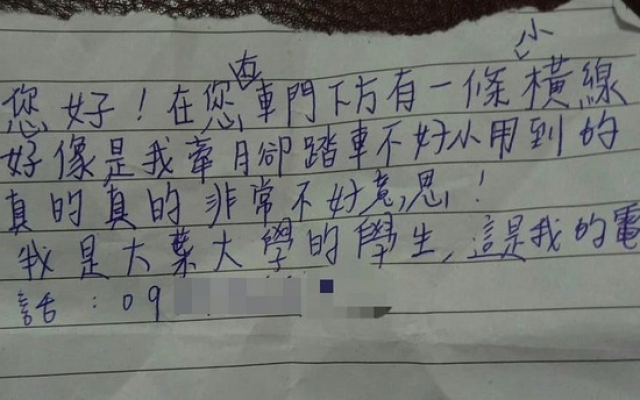 您好！在您車門下方有一條小橫線
好像是我牽腳踏車不好小用到的
真的真的非常不好意思！
我是大葉大學的學生，這是我的電
話：09